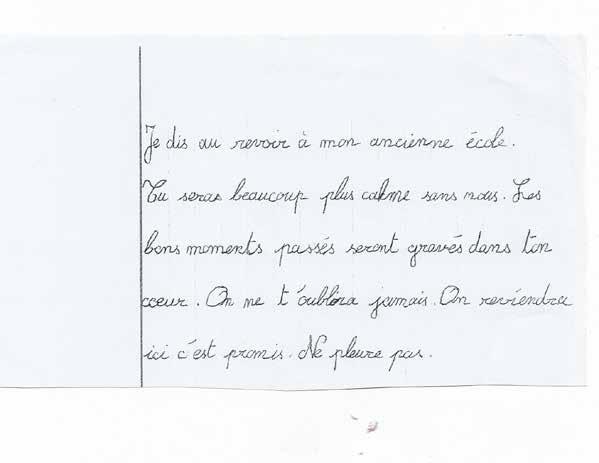 Je dis au revoir à mon ancienne école.
Tu seras beaucoup plus calme sans nous. Les
bons moments passés seront gravés dans ton
coeur. On ne t'oublira jamais. On reviendra
ici c'est promis. Ne pleure pas.